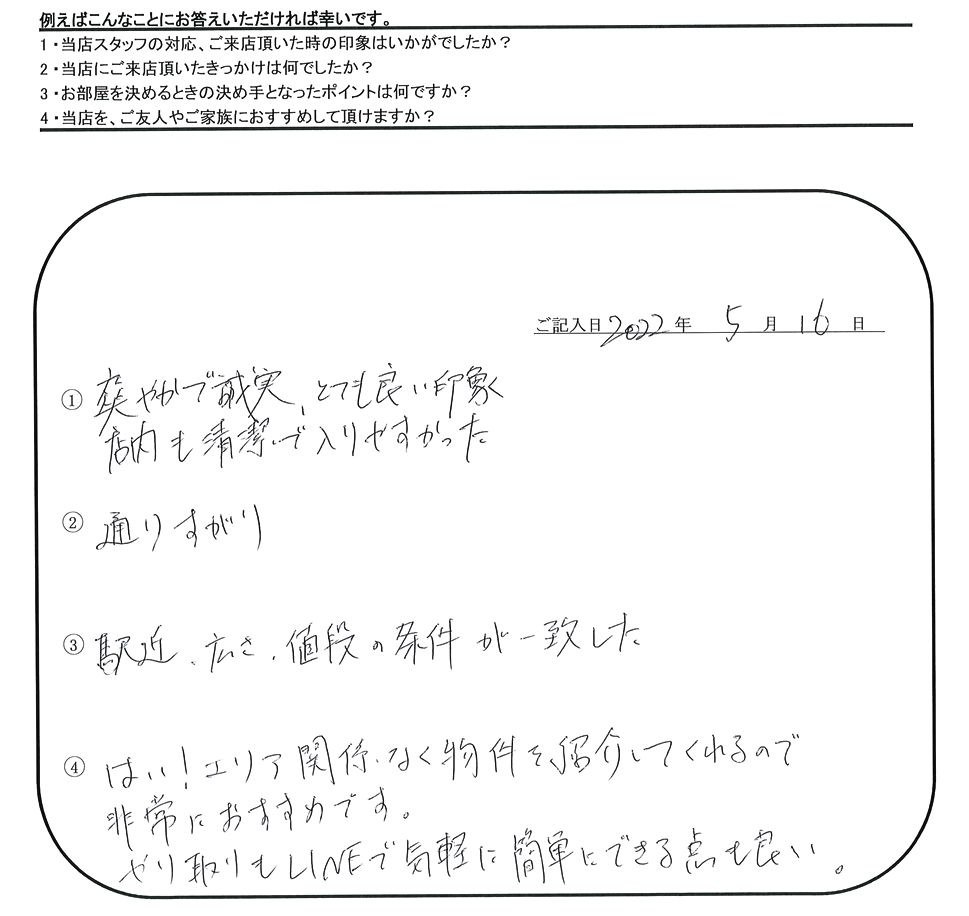 例えばこんなことにお答えいただければ幸いです。
1・当店スタッフの対応、ご来店頂いた時の印象はいかがでしたか？
2・当店にご来店頂いたきっかけは何でしたか？
3・お部屋を決めるときの決め手となったポイントは何ですか？
4・当店を、ご友人やご家族におすすめして頂けますか？
ご記入日 2022 年 5 月 16 日
① 爽やかで誠実、とても良い印象
店内も清潔で入りやすかった
② 通りすがり
③ 駅近、広さ、値段の条件が一致した
④ はい！エリア関係なく物件を紹介してくれるので
非常におすすめです。
やり取りもLINEで気軽に簡単にできる点も良い。